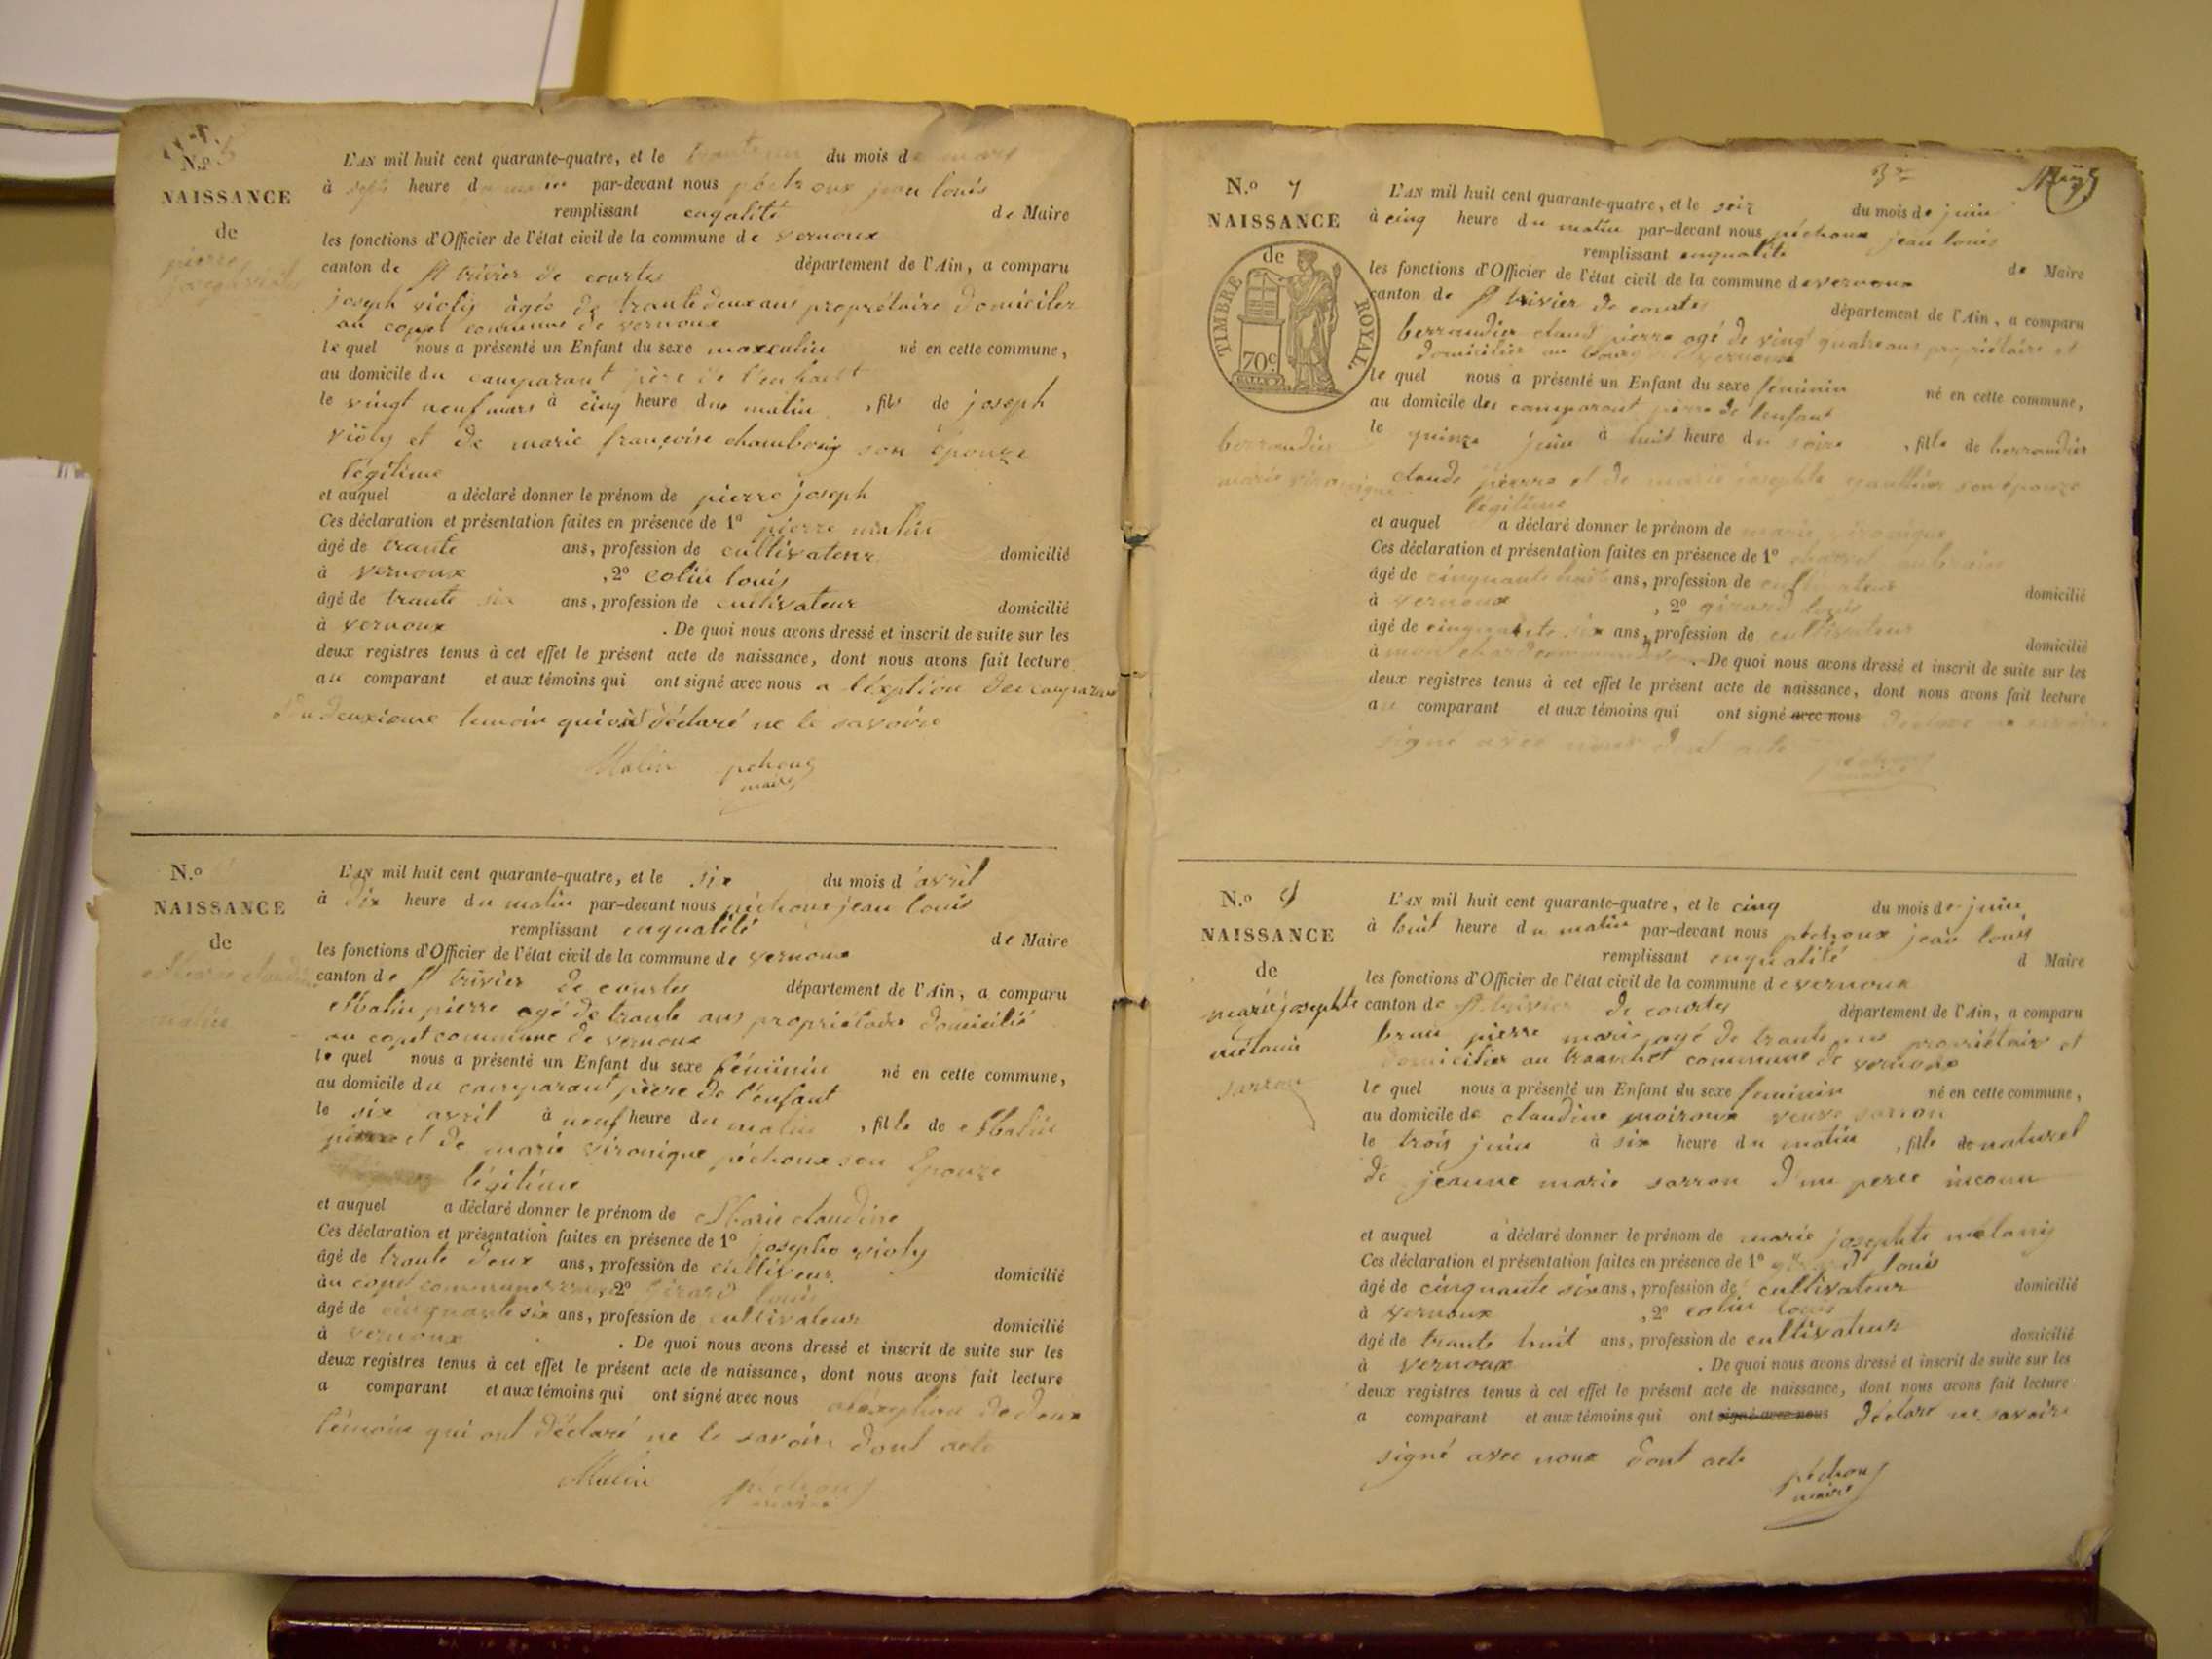 N.º 5
NAISSANCE
de
pierre
joseph violy
L'AN mil huit cent quarante-quatre, et le du mois de mars
à sept heure du matin par-devant nous péchoux jean louis
remplissant enqalité de Maire
les fonctions d'Officier de l'état civil de la commune de vernoux
canton de St trivier de courtes département de l'Ain, a comparu
joseph violy âgés de trante deux ans propriétaire domicilier
au copet commune de vernoux
le quel nous a présenté un Enfant du sexe masculin né en cette commune,
au domicile du comparant père de l'enfant
le vingt neuf mars à cinq heure du matin, fils de joseph
violy et de marie françoise chambouy son épouze
légitime
et auquel a déclaré donner le prénom de pierre joseph
Ces déclaration et présentation faites en présence de 1º pierre malin
âgé de trante ans, profession de cultivateur domicilié
à vernoux, 2º colin louis
âgé de trante six ans, profession de cultivateur domicilié
à vernoux. De quoi nous avons dressé et inscrit de suite sur les
deux registres tenus à cet effet le présent acte de naissance, dont nous avons fait lecture
au comparant et aux témoins qui ont signé avec nous a l'éxption du comparant
du deuxieme temoin qui ont déclaré ne le savoire
Malin péchoux
maire
N.º
NAISSANCE
de
Marie claudine
malin
L'AN mil huit cent quarante-quatre, et le six du mois d'avril
à dix heure du matin par-devant nous péchoux jean louis
remplissant enqualité de Maire
les fonctions d'Officier de l'état civil de la commune de vernoux
canton de St trivier de courtes département de l'Ain, a comparu
Malin pierre agé de trante ans propriétaire domicilié
au copet commune de vernoux
le quel nous a présenté un Enfant du sexe féminin né en cette commune,
au domicile du comparant père de l'enfant
le six avril à neuf heure du matin, fille de Malin
pierre et de marie vironique péchoux son épouze
légitime
et auquel a déclaré donner le prénom de Marie claudine
Ces déclaration et présentation faites en présence de 1º josephe violy
âgé de trante deux ans, profession de cultiveur domicilié
au copet commune, 2º girard louis
âgé de cinquante six ans, profession de cultivateur domicilié
à vernoux. De quoi nous avons dressé et inscrit de suite sur les
deux registres tenus à cet effet le présent acte de naissance, dont nous avons fait lecture
a comparant et aux témoins qui ont signé avec nous de deux
témoin qui ont déclaré ne le savoire dont acte
Malin péchoux
maire
N.º 7
NAISSANCE
de
TIMBRE ROYAL
70c
berraudier
marie véronique
L'AN mil huit cent quarante-quatre, et le seiz du mois de juin
à cinq heure du matin par-devant nous péchoux jean louis
remplissant enqualité de Maire
les fonctions d'Officier de l'état civil de la commune de vernoux
canton de St trivier de courtes département de l'Ain, a comparu
berraudier claud pierre agé de vingt quatre ans propriétaire et
domicilier au bourg de vernoux
le quel nous a présenté un Enfant du sexe féminin né en cette commune,
au domicile du comparant père de l'enfant
le quinze juin à huit heure du soire, fille de berraudier
claude pierre et de marie josephte gauthier son épouze
légitime
et auquel a déclaré donner le prénom de marie vironique
Ces déclaration et présentation faites en présence de 1º
âgé de cinquante huit ans, profession de cultivateur domicilié
à vernoux, 2º girard louis
âgé de cinquante six ans, profession de cultivateur domicilié
à . De quoi nous avons dressé et inscrit de suite sur les
deux registres tenus à cet effet le présent acte de naissance, dont nous avons fait lecture
au comparant et aux témoins qui ont signé avec nous déclaré ne savoire
signé avec nous dont acte péchoux
maire
N.º 9
NAISSANCE
de
marie josephte
mélanie
sarron
L'AN mil huit cent quarante-quatre, et le cinq du mois de juin
à huit heure du matin par-devant nous péchoux jean louis
remplissant enqualité d Maire
les fonctions d'Officier de l'état civil de la commune de vernoux
canton de St trivier de courtes département de l'Ain, a comparu
brun pierre marie agé de trante ans propriétaire et
domicilier au tranchet commune de vernoux
le quel nous a présenté un Enfant du sexe feminin né en cette commune,
au domicile de claudine moiroux veuve sarron
le trois juin à six heure du matin, fille de naturel
de jeanne marie sarron d'un perre inconu
et auquel a déclaré donner le prénom de marie josephte mélany
Ces déclaration et présentation faites en présence de 1º girard louis
âgé de cinquante six ans, profession de cultivateur domicilié
à vernoux, 2º colin louis
âgé de trante huit ans, profession de cultivateur domicilié
à vernoux. De quoi nous avons dressé et inscrit de suite sur les
deux registres tenus à cet effet le présent acte de naissance, dont nous avons fait lecture
a comparant et aux témoins qui ont signé avec nous déclaré ne savoire
signé avec nous dont acte
péchoux
maire